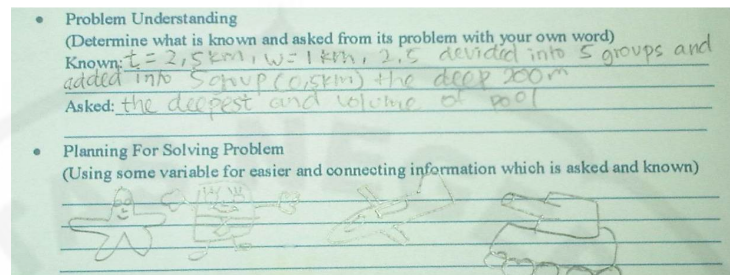 • Problem Understanding
(Determine what is known and asked from its problem with your own word)
Known: t = 2,5 km, w = 1 km, 2,5 devided into 5 groups and
added into 5 group (0,5km) the deep 200m
Asked: the deepest and volume of pool
• Planning For Solving Problem
(Using some variable for easier and connecting information which is asked and known)